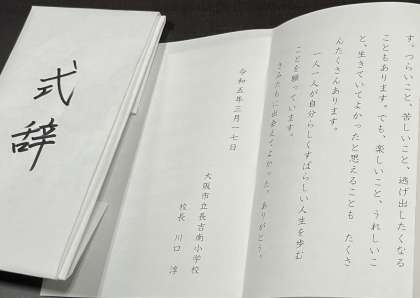 式辞
す。つらいこと、苦しいこと、逃げ出したくなる
こともあります。でも、楽しいこと、うれしいこ
と、生きていてよかったと思えることも たくさ
んたくさんあります。
一人一人が自分らしくすばらしい人生を歩む
ことを願っています。
きみたちに出会えてよかった。ありがとう。
令和五年三月一七日
大阪市立長吉南小学校
校長 川口 淳